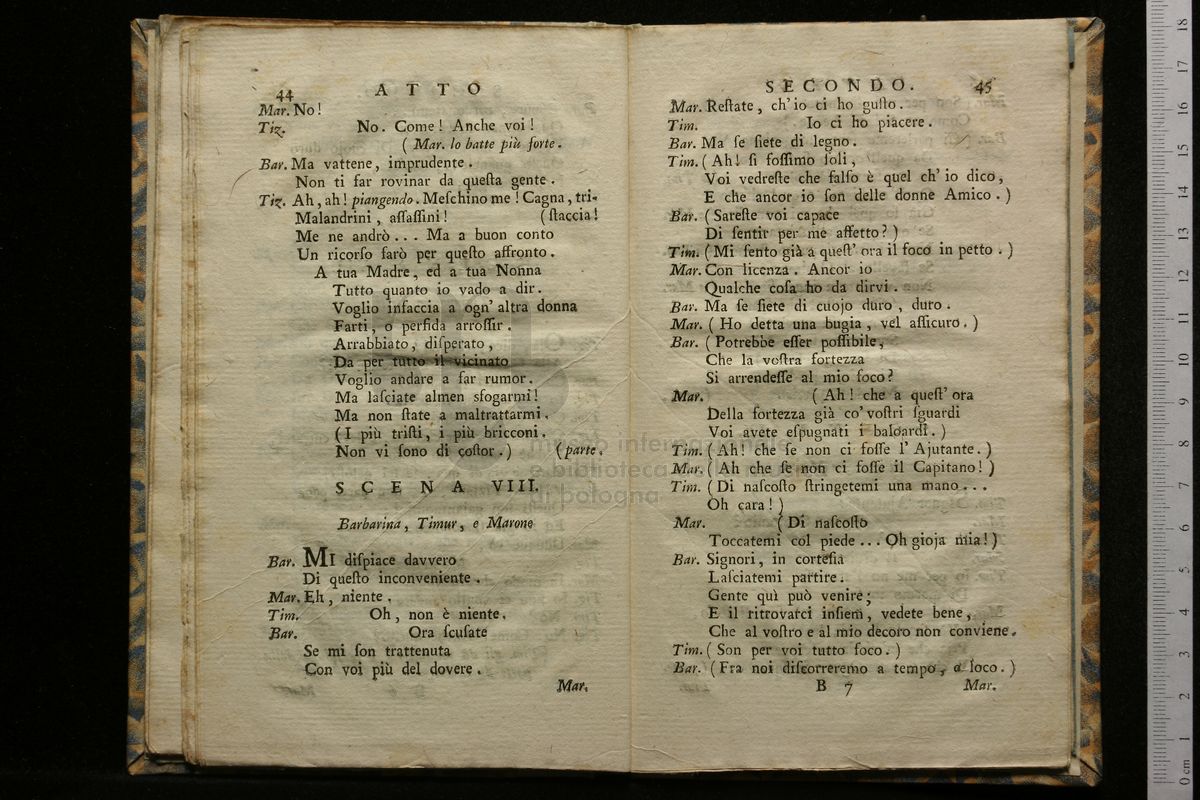 44 ATTO
Mar. No!
Tiz. No. Come! Anche voi!
( Mar. lo batte più forte.
Bar. Ma vattene, imprudente.
Non ti far rovinar da queſta gente.
Tiz. Ah, ah! piangendo. Meſchino me! Cagna, tri-
Malandrini, aſſaſſini! (ſtaccia!
Me ne andrò... Ma a buon conto
Un ricorſo farò per queſto affronto.
A tua Madre, ed a tua Nonna
Tutto quanto io vado a dir.
Voglio infaccia a ogn' altra donna
Farti, o perfida arroſſir.
Arrabbiato, diſperato,
Da per tutto il vicinato
Voglio andare a far rumor.
Ma laſciate almen sfogarmi!
Ma non ſtate a maltrattarmi.
(I più triſti, i più bricconi.
Non vi ſono di coſtor.) (parte.
SCENA VIII.
Barbarina, Timur, e Marone
Bar. MI diſpiace davvero
Di queſto inconveniente.
Mar. Eh, niente.
Tim. Oh, non è niente.
Bar. Ora ſcuſate
Se mi ſon trattenuta
Con voi più del dovere.
Mar.
SECONDO. 45
Mar. Reſtate, ch'io ci ho guſto.
Tim. Io ci ho piacere.
Bar. Ma ſe ſiete di legno.
Tim. (Ah! ſi foſſimo ſoli,
Voi vedreſte che falſo è quel ch' io dico,
E che ancor io ſon delle donne Amico.)
Bar. (Sareſte voi capace
Di ſentir per me affetto?)
Tim. (Mi ſento già a queſt' ora il foco in petto.)
Mar. Con licenza. Ancor io
Qualche coſa ho da dirvi.
Bar. Ma ſe ſiete di cuojo duro, duro.
Mar. (Ho detta una bugia, vel aſſicuro.)
Bar. (Potrebbe eſſer poſſibile,
Che la voſtra fortezza
Si arrendeſſe al mio foco?
Mar. (Ah! che a queſt' ora
Della fortezza già co' voſtri ſguardi
Voi avete eſpugnati i baloardi.)
Tim. (Ah! che ſe non ci foſſe l' Ajutante.)
Mar. (Ah che ſe non ci foſſe il Capitano!)
Tim. (Di naſcoſto ſtringetemi una mano...
Oh cara!)
Mar. (Di naſcoſto
Toccatemi col piede... Oh gioja mia!)
Bar. Signori, in corteſia
Laſciatemi partire.
Gente quì può venire;
E il ritrovarci inſiem, vedete bene,
Che al voſtro e al mio decoro non conviene.
Tim. (Son per voi tutto foco.)
Bar. (Fra noi diſcorreremo a tempo, e loco.)
B 7 Mar.